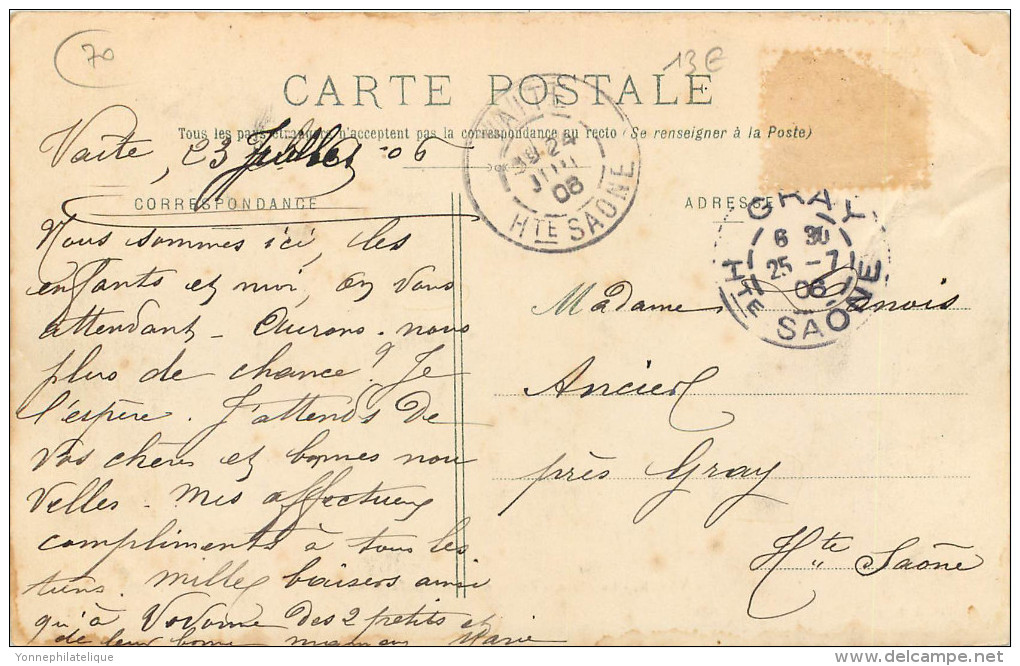 70
13 €
CARTE POSTALE
Tous les pays étrangers n'acceptent pas la correspondance au recto (Se renseigner à la Poste)
Vaite, 23 Juillet 06
VAITE
24
JUIL
06
HTE SAONE
CORRESPONDANCE
ADRESSE
GRAY
6 30
25 - 7
06
HTE SAONE
Nous sommes ici, les
enfants et moi, on vous
attendant - Aurons-nous
plus de chance? Je
l'espère. J'attends de
vos chères et bonnes nou
velles. Mes affectueux
compliments à tous les
tiens. Mille baisers ainsi
qu'à des 2 petits et
de leur bonne maman Marie
Madame
Ancier
près Gray
Hte Saône
Yonnephilatelique